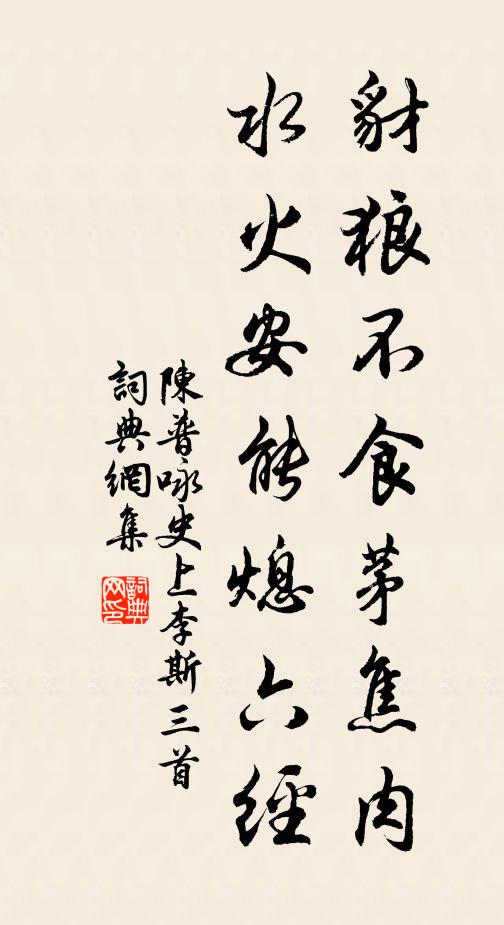 豺狼不食茅焦肉
水火安能熄六經
陳普咏史上李斯三首
詞典網集
詞典網印